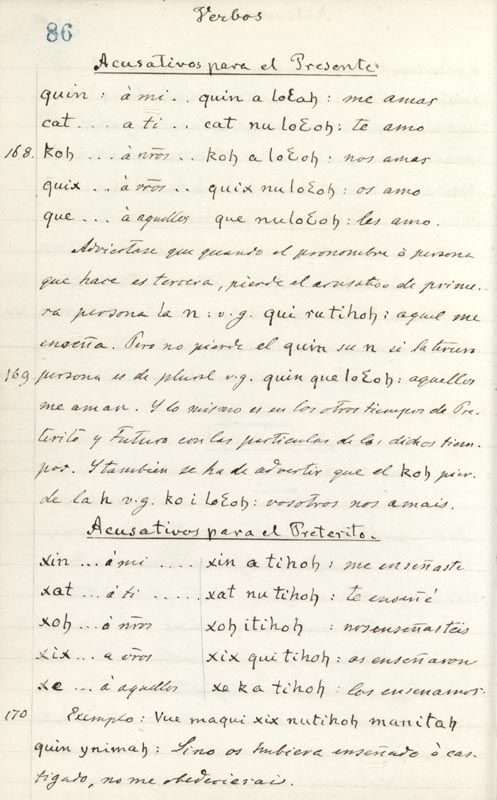 Verbos
86
Acusativos para el Presente.
quin : à mi .. quin a loƐoh : me amas
cat ... a ti .. cat nu loƐoh : te amo
168. koh ... à nr̃os .. koh a loƐoh : nos amas
quix ... à vr̃os .. quix nu loƐoh : os amo
que ... à aquellos que nu loƐoh : les amo.
Adviertase que quando el pronombre ò persona
que hace es tercera, pierde el acusativo de prime-
ra persona la n : v.g. qui ru tihoh : aquel me
enseña. Pero no pierde el quin su n si la tercera
169 persona es de plural v.g. quin que loƐoh : aquellos
me aman. Y lo mismo es en los otros tiempos de Pre-
terito y Futuro con las particulas de los dichos tiem-
pos. Y tambien se ha de advertir que el koh pier-
de la h v.g. ko i loƐoh : vosotros nos amais.
Acusativos para el Preterito.
xin ... à mi .... xin a tihoh : me enseñaste
xat ... à ti ..... xat nu tihoh : te enseñé
xoh ... à nr̃os xoh itihoh : nos enseñasteis
xix ... a vr̃os xix qui tihoh : os enseñaron
xe ... à aquellos xe ka tihoh : los enseñamos.
170 Exemplo : Vue maqui xix nutihoh manitah
quin ynimah : Sino os hubiera enseñado ò cas-
tigado, no me obedecierais.